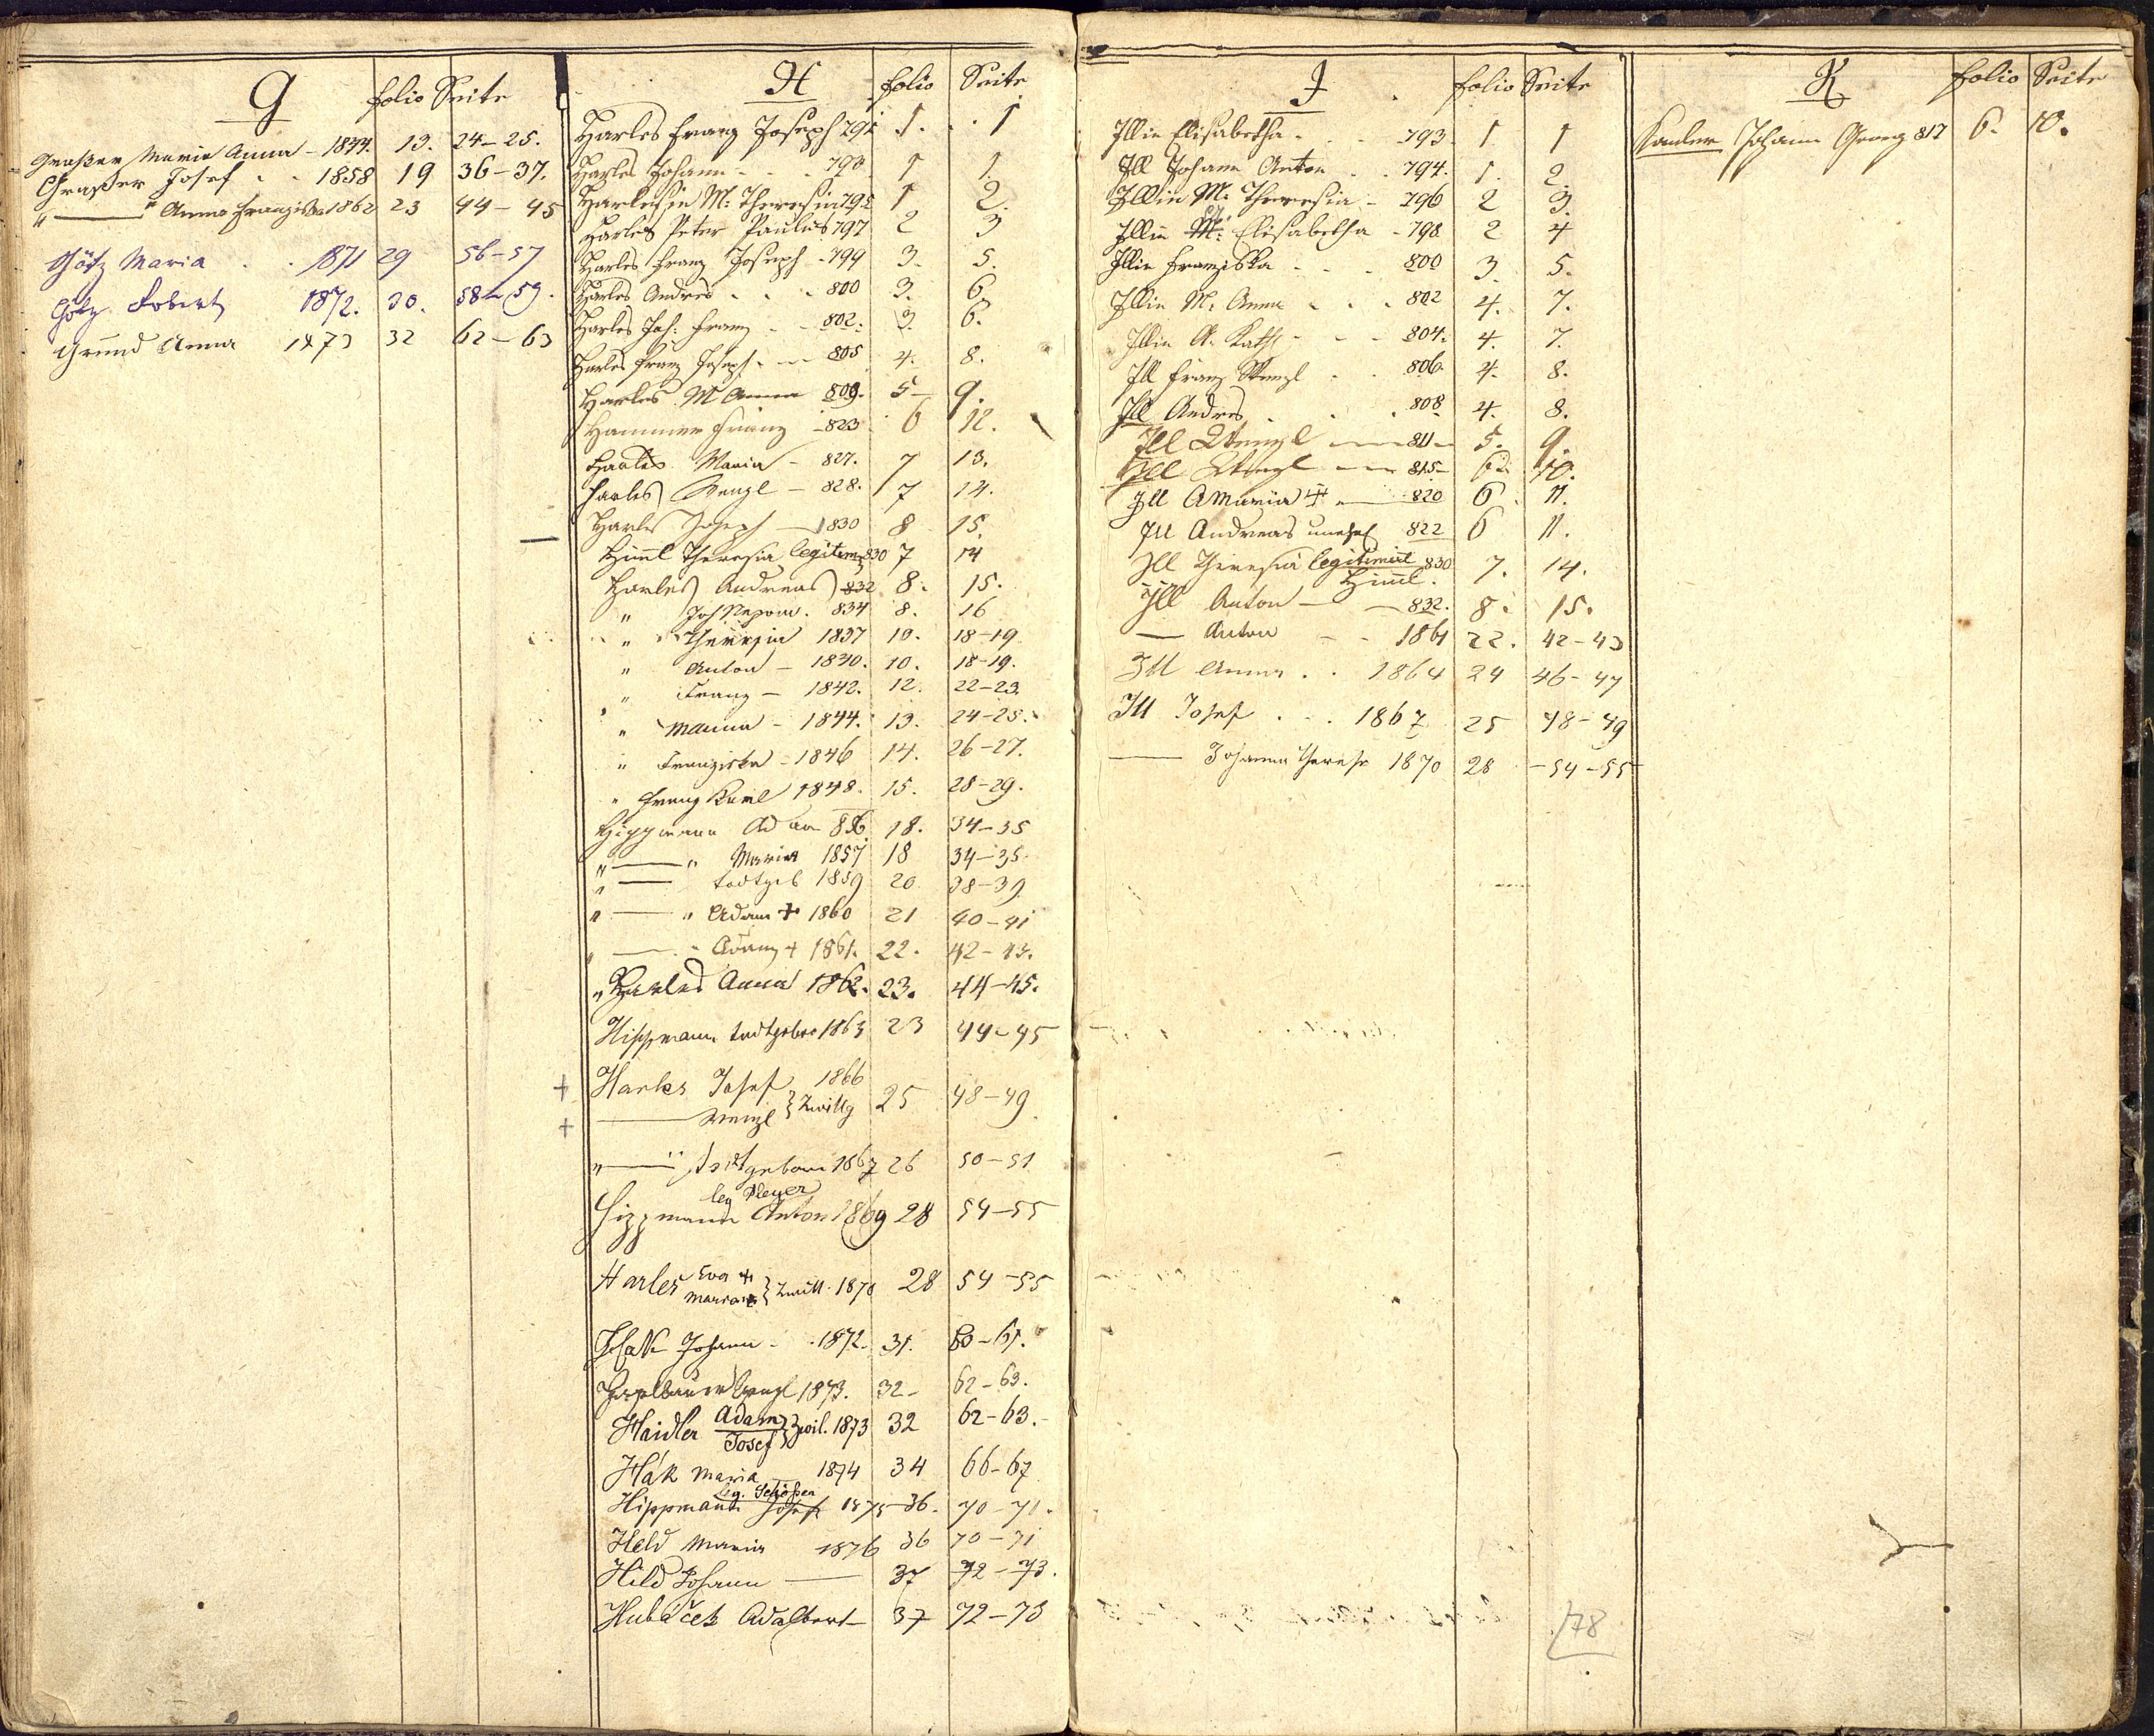 G folio Seite
Graßer Maria Anna - 1844. 13. 24-25.
Graßer Josef - - 1858 19 36-37.
" — " Anna Franziska 1862 23 44-45
Götz Maria . . 1871 29 56-57
Götz Robert 1872. 30. 58-59.
Gründ Anna 1873 32 62-63
H folio Seite
Harles Franz Joseph 791 1. 1
Harles Johann - - - 793 1 1.
Harlesin M: Theresia 795 1 2.
Harles Peter Paulus 797 2 3
Harles Franz Joseph - 799 3. 5.
Harles Andres - - - 800 3. 6
Harles Joh: Franz - - 802. 3. 6.
Harles Franz Joseph - - 805 4. 8.
Harles M Anna 809. 5- 9.
Hammer Franz - 823 6 12.
Harles Maria - 827. 7 13.
Harles Wenzl - 828. 7 14.
Harles Joseph - 1830 8 15.
Himl Theresia legitim 830 7 14
Harles Andreas 832 8. 15.
" Joh Nepom. 834 8. 16
" Theresia 1837 10. 18-19
" Anton - 1830. 10. 18-19.
" Franz - 1842. 12. 22-23.
" M anna - 1844. 13. 24-25.
" Franziska - 1846 14. 26-27.
" Franz Karl 1848. 15. 28-29.
Hippmann Adam 856 18. 34-35
" — " Maria 1857 18 34-35.
" — todtgeb 1859 20 38-39
" — " Adam + 1860 21 40-41
" — " + 1861. 22. 42-43.
" Harles Anna 1862. 23. 44-45.
Hippmann todtgebor 1863 23 44-45
Harles Josef 1866
— Wenzl } Zwillg 25 48-49
" — " todtgeboren 1867 26 50-51
leg Pleyer
Hippmann Anton 1869 28 54-55
Harles Eva +
Maria + } Zwill. 1870 28 54-55
Johann - . 1872. 31. 60-61.
Wenzl 1873. 32- 62-63.
Haidler Adam
Josef } Zwil. 1873 32 62-63.
Hák Maria — 1874 34 66-67
leg.
Hippmann Josef 1875 - 36. 70-71.
Held Maria 1876 36 70-71
Hild Johann — 37 72-73.
Hubáček Adalbert - 37 72-73
I folio Seite
Illin Elisabetha - - - 793 1 1
Ill Johann Anton . . 794. 1. 2.
Illin M: Theresia - 796 2 3.
Illin M: Elisabetha - 798 2 4
Illin Franziska - - - 800 3 5.
Illin M: Anna - - - 802 4. 7.
Illin A. Kath - - - 804. 4. 7.
Ill Franz Wenzl - - 806 4. 8.
Ill Andres . . . 808 4. 8.
Ill Wenzl — 811 - 5. 9.
Ill Wenzl — 815- 6. 10.
Ill A Maria + — 820 6 11.
Ill Andreas unehel 822 6 11.
Ill Theresia legitimirt 830 7. 14.
Himl.
Ill Anton — - 832. 8. 15.
— Anton - - 1861 22. 42-43
Ill Anna . . 1864 24 46-47
Ill Josef . . . 1867 25 48-49
— Johanna Therese 1870 28 -54-55
78
K folio Seite
Johann Georg 817 6. 10.